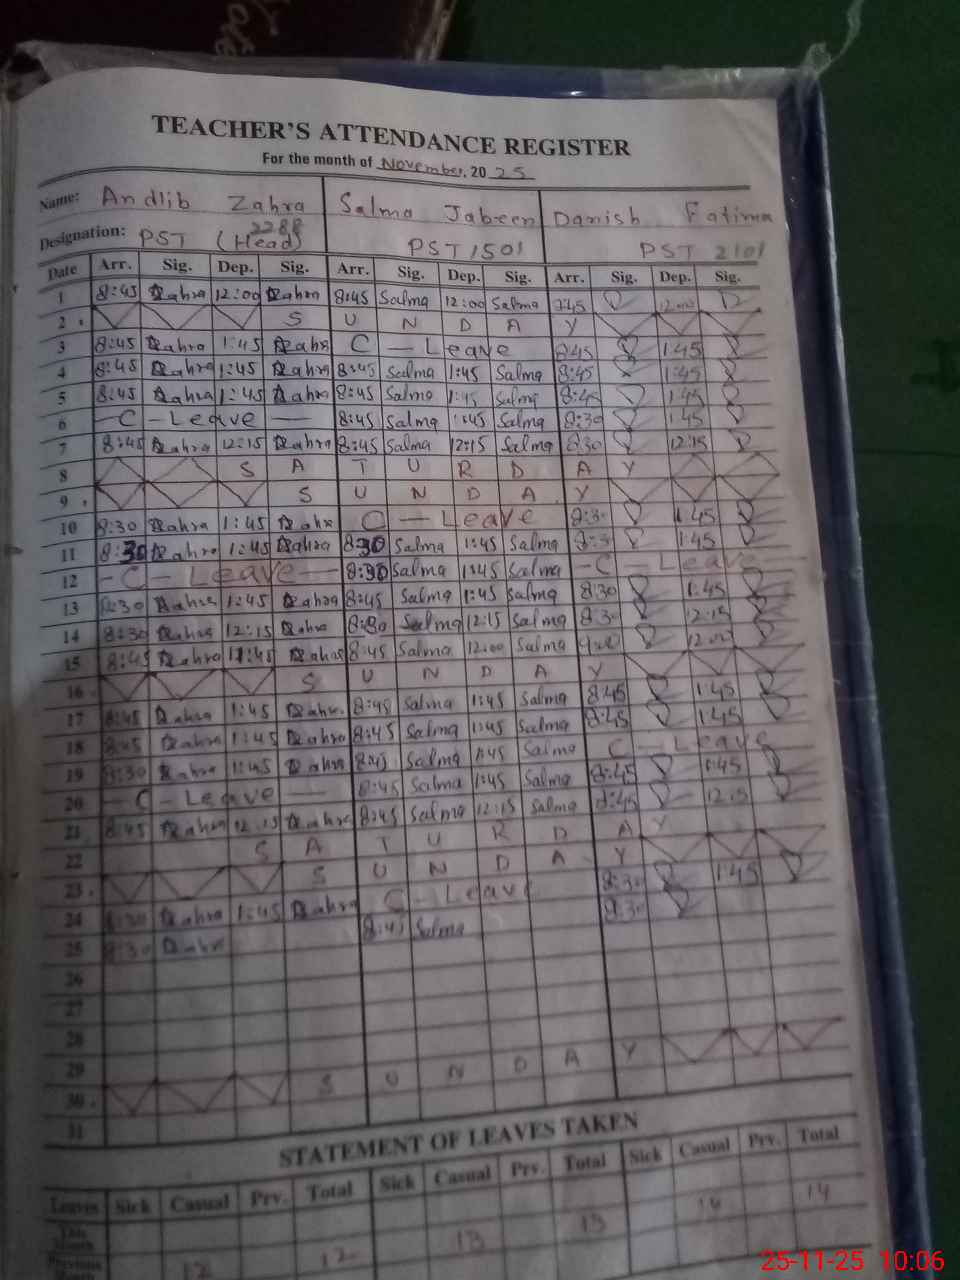 TEACHER'S ATTENDANCE REGISTER
For the month of November, 20 25
Name: Andlib Zahra Salma Jabeen Danish Fatima
2288
Designation: PST (Head) PST 1501 PST 2101
Date Arr. Sig. Dep. Sig. Arr. Sig. Dep. Sig. Arr. Sig. Dep. Sig.
1 8:45 Zahra 12:00 Zahra 8:45 Salma 12:00 Salma 12:00
2 S U N D A Y
3 8:45 Zahra 1:45 Zahra C - Leave 8:45 1:45
4 8:45 Zahra 1:45 Zahra 8:45 Salma 1:45 Salma 8:45 1:45
5 8:45 Zahra 1:45 Zahra 8:45 Salma 1:45 Salma 8:45 1:45
6 - C - Leave - 8:45 Salma 1:45 Salma 8:30 1:45
7 8:45 Zahra 12:15 Zahra 8:45 Salma 12:15 Salma 8:30 12:15
8 S A T U R D A Y
9 S U N D A Y
10 8:30 Zahra 1:45 Zahra C - Leave 8:30 1:45
11 8:30 Zahra 1:45 Zahra 8:30 Salma 1:45 Salma 1:45
12 - C - Leave - 8:30 Salma 1:45 Salma - C - Leave
13 8:30 Zahra 1:45 Zahra 8:45 Salma 1:45 Salma 8:30 1:45
14 8:30 Zahra 12:15 Zahra 8:30 Salma 12:15 Salma 8:30 12:15
15 8:45 Zahra Zahra 8:45 Salma 12:00 Salma 12:00
16 S U N D A Y
17 8:45 Zahra 1:45 Zahra 8:45 Salma 1:45 Salma 8:45 1:45
18 8:45 Zahra 1:45 Zahra 8:45 Salma 1:45 Salma 8:45 1:45
19 8:30 Zahra 1:45 Zahra 8:45 Salma 1:45 Salma C - Leave
20 - C - Leave - 8:45 Salma 1:45 Salma 8:45 1:45
21 8:45 Zahra 12:15 Zahra 8:45 Salma 12:15 Salma 8:45 12:15
22 S A T U R D A Y
23 S U N D A Y
24 8:30 Zahra 1:45 Zahra C - Leave 8:30 1:45
25 8:30 Zahra 8:45 Salma 8:30
26
27
28
29
30 S U N D A Y
31
STATEMENT OF LEAVES TAKEN
Leaves Sick Casual Prv. Total Sick Casual Prv. Total Sick Casual Prv. Total
This Month
Previous 12 12 13 13 14 14
25-11-25 10:06